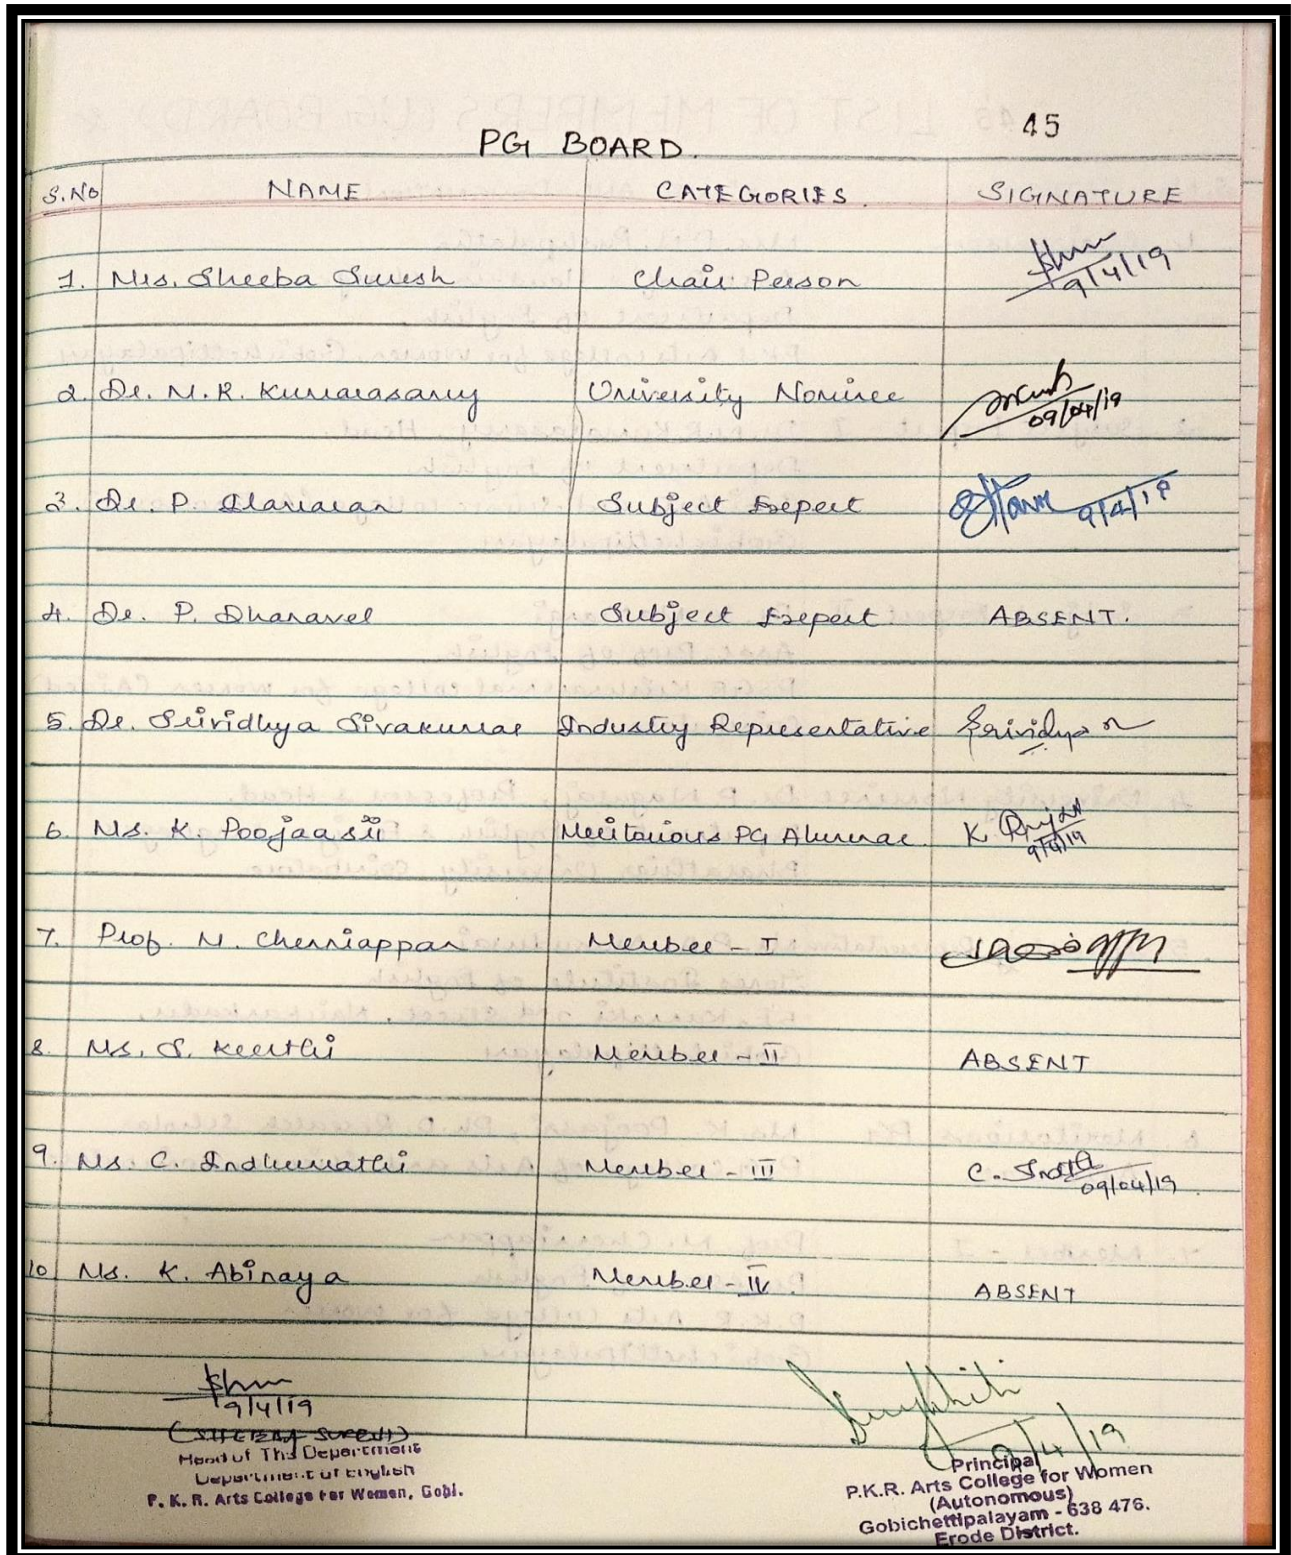 45
PG BOARD.
S.No NAME CATEGORIES. SIGNATURE
1. Mrs. Sheeba Suresh Chair Person 9/4/19
2. Dr. M. R. Kumarasamy University Nominee 09/04/19
3. Dr. P. Elanaran Subject Expert 9/4/19
4. Dr. P. Dhanavel Subject Expert ABSENT.
5. Dr. Srividhya Sivakumar Industry Representative Srividya
6. Ms. K. Poojaasri Meritorious PG Alumnae. K 9/4/19
7. Prof. M. Chenniappan Member - I
8. Ms. S. Keerthi Member - II ABSENT
9. Ms. C. Indhumathi Member - III C. 09/04/19
10 Ms. K. Abinaya Member - IV ABSENT
9/4/19
(SHEEBA SURESH)
Head of The Department
Department of English
P. K. R. Arts College for Women, Gobi.
9/4/19
Principal
P.K.R. Arts College for Women
(Autonomous)
Gobichettipalayam - 638 476.
Erode District.